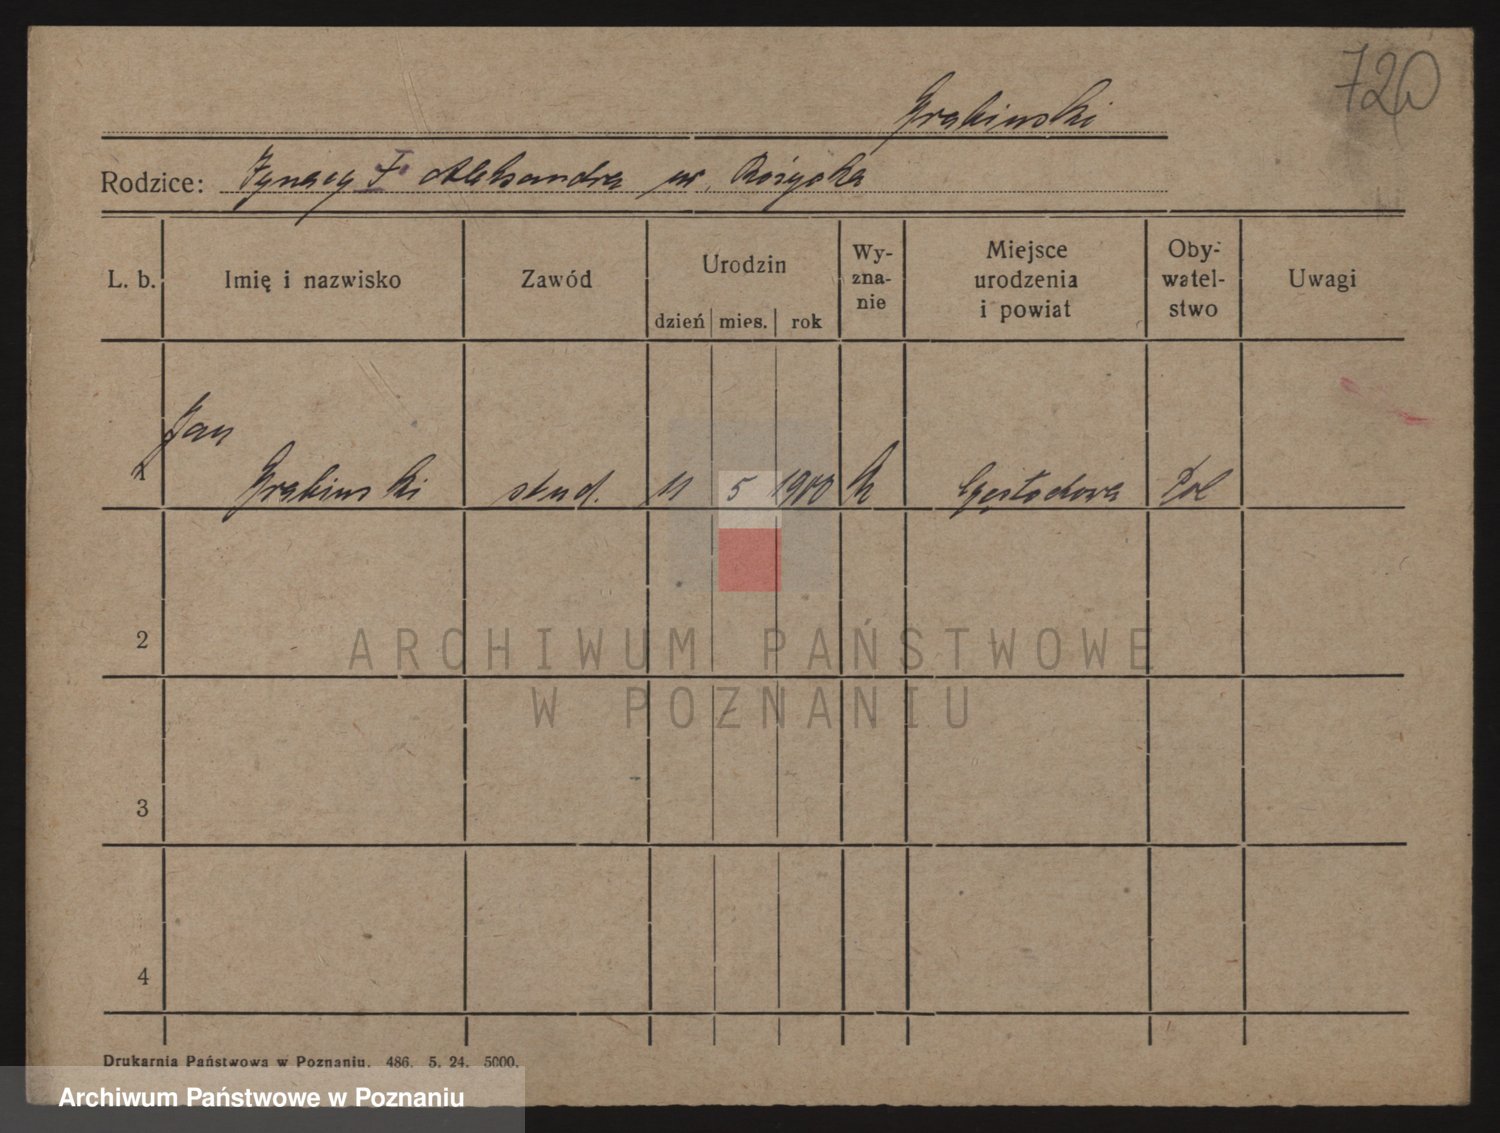 720
Grabinski
Rodzice: Ignacy I Aleksandra ur. Rożycka
L. b. Imię i nazwisko Zawód Urodzin dzień mies. rok Wy-znanie Miejsce urodzenia i powiat Oby-watel-stwo Uwagi
Jan
1 Grabinski stud. 11 5 1900 k Częstochowa Pol
2
ARCHIWUM PAŃSTWOWE
W POZNANIU
3
4
Drukarnia Państwowa w Poznaniu. 486. 5. 24. 5000.
Archiwum Państwowe w Poznaniu